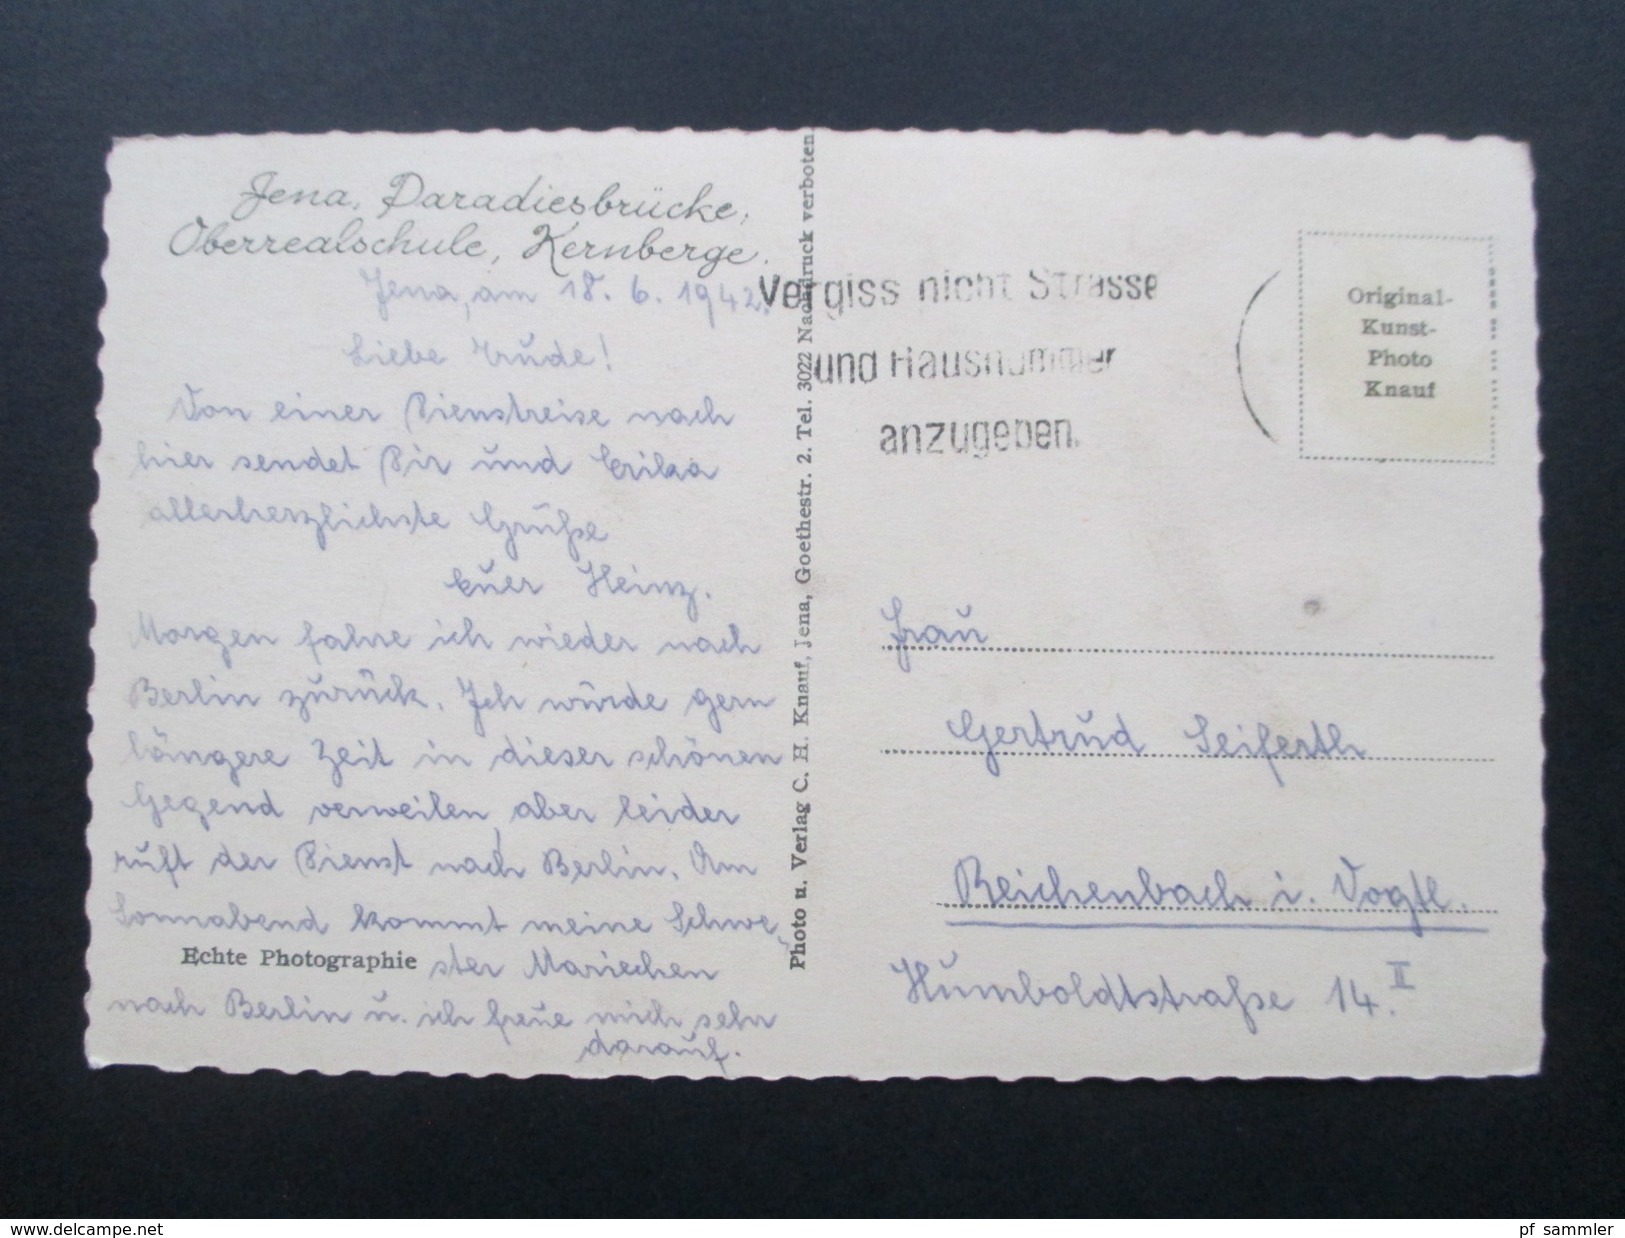 Jena, Paradiesbrücke,
Oberrealschule, Kernberge.
Jena, am 18. 6. 1942.
Liebe Trude!
Von einer Dienstreise nach
hier sendet Dir und Erika
allerherzlichste Grüße
Euer Heinz.
Morgen fahre ich wieder nach
Berlin zurück. Ich würde gern
längere Zeit in dieser schönen
Gegend verweilen, aber leider
ruft der Dienst nach Berlin. Am
Sonnabend kommt meine Schwe-
ster Mariechen
nach Berlin u. ich freue mich sehr
darauf.
Echte Photographie
Photo u. Verlag C. H. Knauf, Jena, Goethestr. 2. Tel. 3022 Nachdruck verboten
Vergiss nicht Strasse
und Hausnummer
anzugeben.
Original-
Kunst-
Photo
Knauf
Frau
Gertrud Seiferth
Reichenbach i. Vogtl.
Humboldtstraße 14. II
www.delcampe.net
pf_sammler